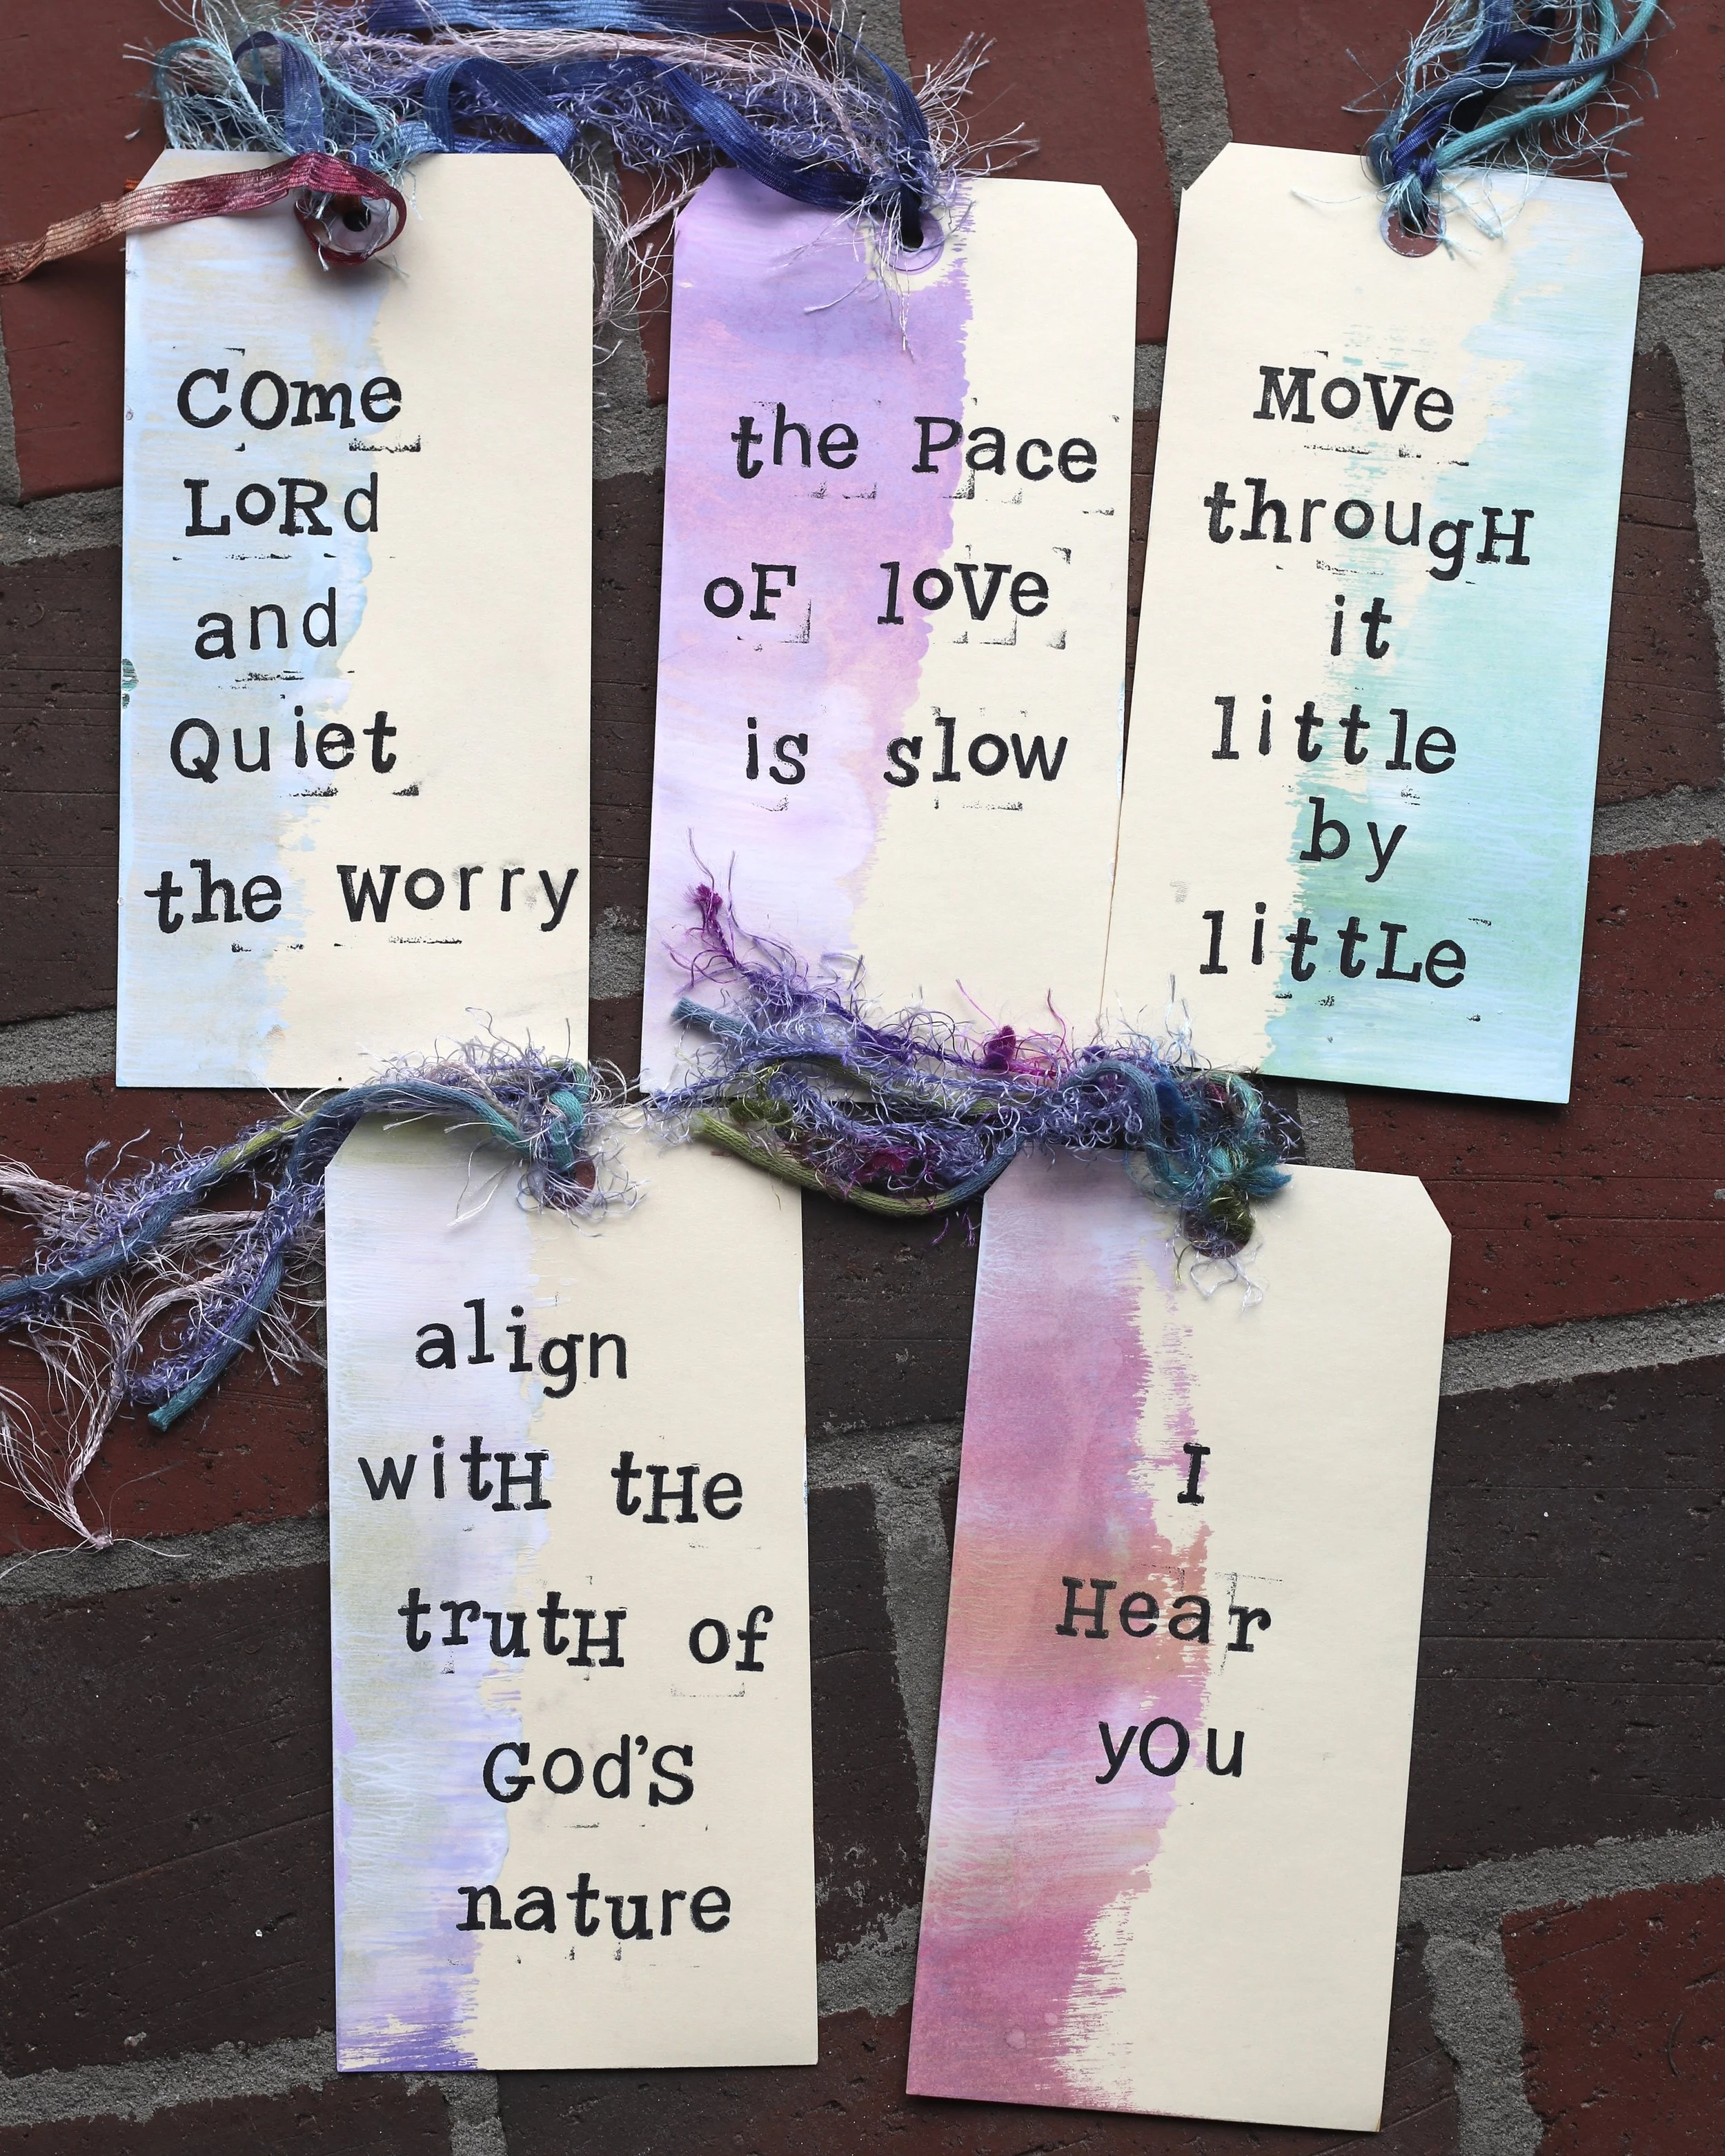 COme
LoRd
and
Quiet
the Worry
the Pace
oF loVe
is slow
MoVe
througH
it
little
by
littLe
align
witH tHe
trutH of
God's
nature
I
Hear
yOu